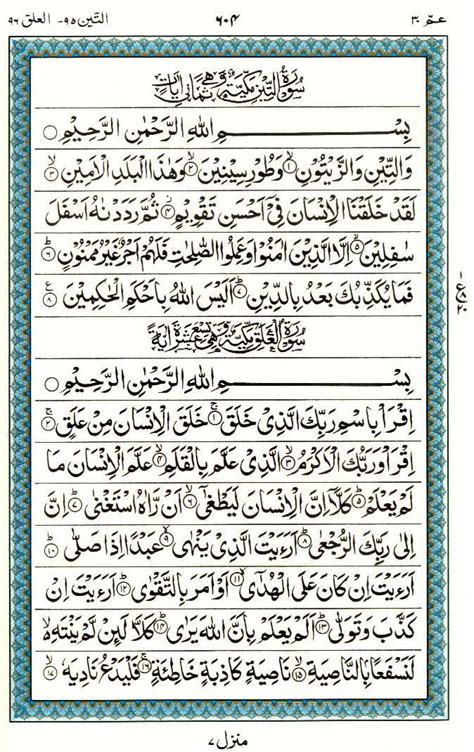 عـمّ ٣٠ ٦٠٤ التّين ٩٥- العلق ٩٦
سُوْرَةُ التِّيْنِ مَكِّيَّةٌ وَّهِيَ ثَمَانِيْ اٰيَاتٍ
بِسْــــــمِ اللهِ الرَّحْمٰنِ الرَّحِيْمِ ○
وَالتِّيْنِ وَالزَّيْتُوْنِ ۝١ وَطُوْرِ سِيْنِيْنَ ۝٢ وَهٰذَا الْبَلَدِ الْاَمِيْنِ ۝٣
لَقَدْ خَلَقْنَا الْاِنْسَانَ فِيْٓ اَحْسَنِ تَقْوِيْمٍ ۝٤ ثُمَّ رَدَدْنٰهُ اَسْفَلَ
سٰفِلِيْنَ ۝٥ اِلَّا الَّذِيْنَ اٰمَنُوْا وَعَمِلُوا الصّٰلِحٰتِ فَلَهُمْ اَجْرٌ غَيْرُ مَمْنُوْنٍ ۝٦
فَمَا يُكَذِّبُكَ بَعْدُ بِالدِّيْنِ ۝٧ اَلَيْسَ اللهُ بِاَحْكَمِ الْحٰكِمِيْنَ ۝٨
سُوْرَةُ الْعَلَقِ مَكِّيَّةٌ وَّهِيَ تِسْعَ عَشَرَةَ اٰيَةً
بِسْــــــمِ اللهِ الرَّحْمٰنِ الرَّحِيْمِ ○
اِقْرَاْ بِاسْمِ رَبِّكَ الَّذِيْ خَلَقَ ۝١ خَلَقَ الْاِنْسَانَ مِنْ عَلَقٍ ۝٢
اِقْرَاْ وَرَبُّكَ الْاَكْرَمُ ۝٣ الَّذِيْ عَلَّمَ بِالْقَلَمِ ۝٤ عَلَّمَ الْاِنْسَانَ مَا
لَمْ يَعْلَمْ ۝٥ كَلَّآ اِنَّ الْاِنْسَانَ لَيَطْغٰٓى ۝٦ اَنْ رَّاٰهُ اسْتَغْنٰى ۝٧ اِنَّ
اِلٰى رَبِّكَ الرُّجْعٰى ۝٨ اَرَءَيْتَ الَّذِيْ يَنْهٰى ۝٩ عَبْدًا اِذَا صَلّٰى ۝١٠
اَرَءَيْتَ اِنْ كَانَ عَلَى الْهُدٰٓى ۝١١ اَوْ اَمَرَ بِالتَّقْوٰى ۝١٢ اَرَءَيْتَ اِنْ
كَذَّبَ وَتَوَلّٰى ۝١٣ اَلَمْ يَعْلَمْ بِاَنَّ اللهَ يَرٰى ۝١٤ كَلَّا لَئِنْ لَّمْ يَنْتَهِ لا
لَنَسْفَعًا بِالنَّاصِيَةِ ۝١٥ نَاصِيَةٍ كَاذِبَةٍ خَاطِئَةٍ ۝١٦ فَلْيَدْعُ نَادِيَهٗ ۝١٧
منزل ٧